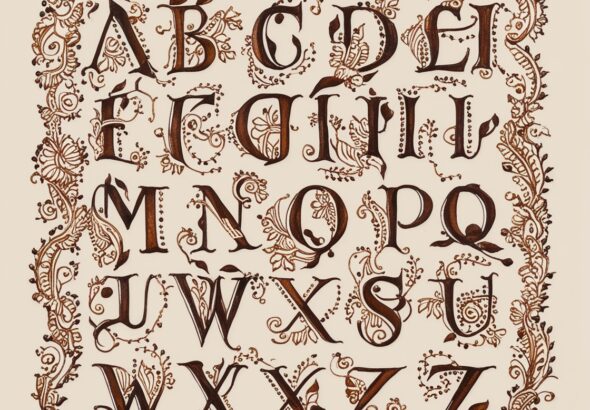 A B C D E I
F C D I I I L
M N Q P Q
I W X S U
W X X Z Z